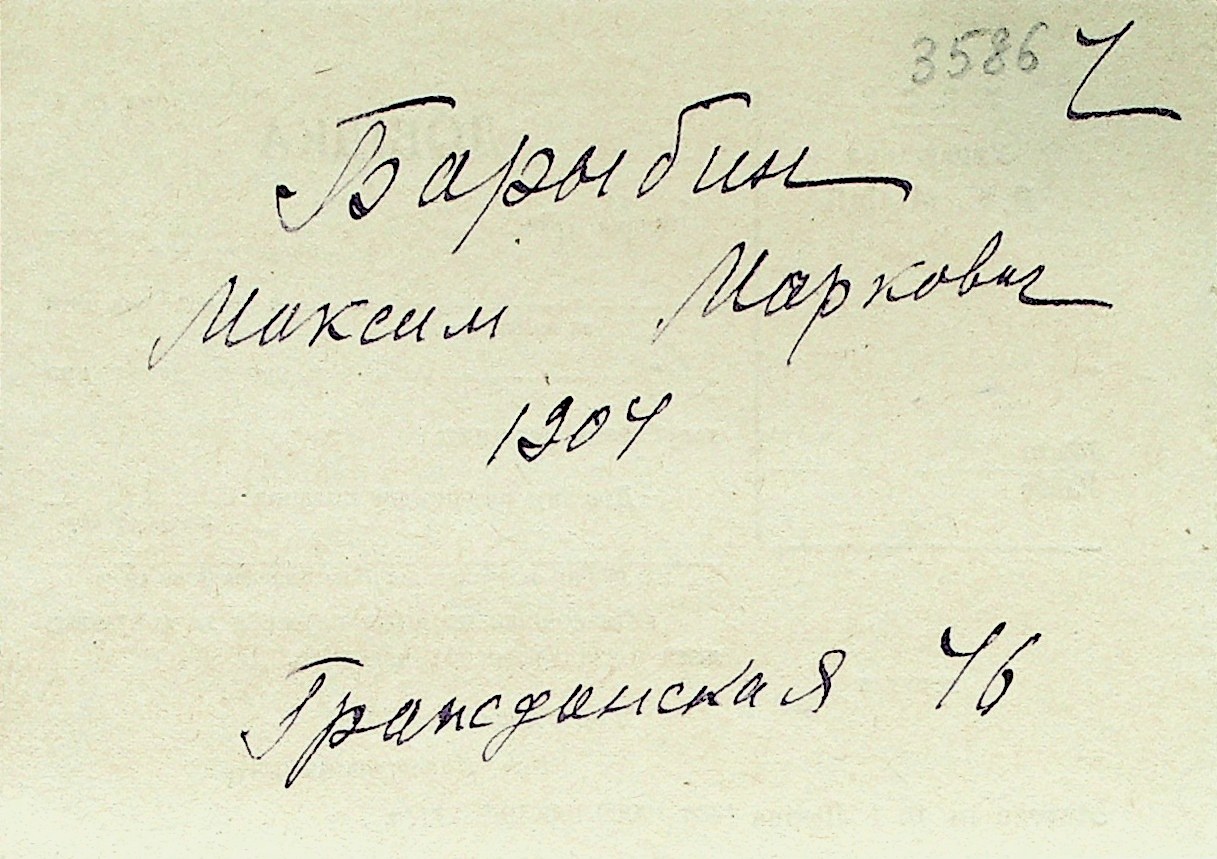 3586 Ч
Барыбин
Максим Маркович
1904
Гражданская 46